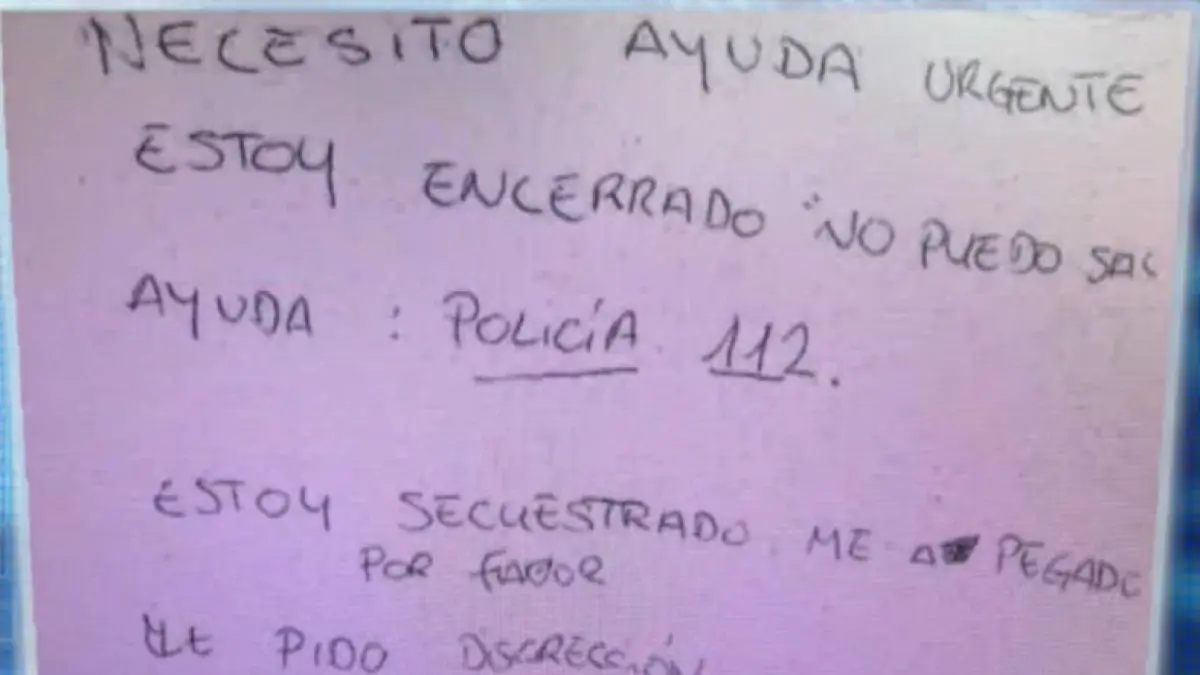 NECESITO AYUDA URGENTE
ESTOY ENCERRADO NO PUEDO
AYUDA : POLICÍA 112.
ESTOY SECUESTRADO. ME A PEGADO
POR FAVOR
LE PIDO DISCRECCIÓN